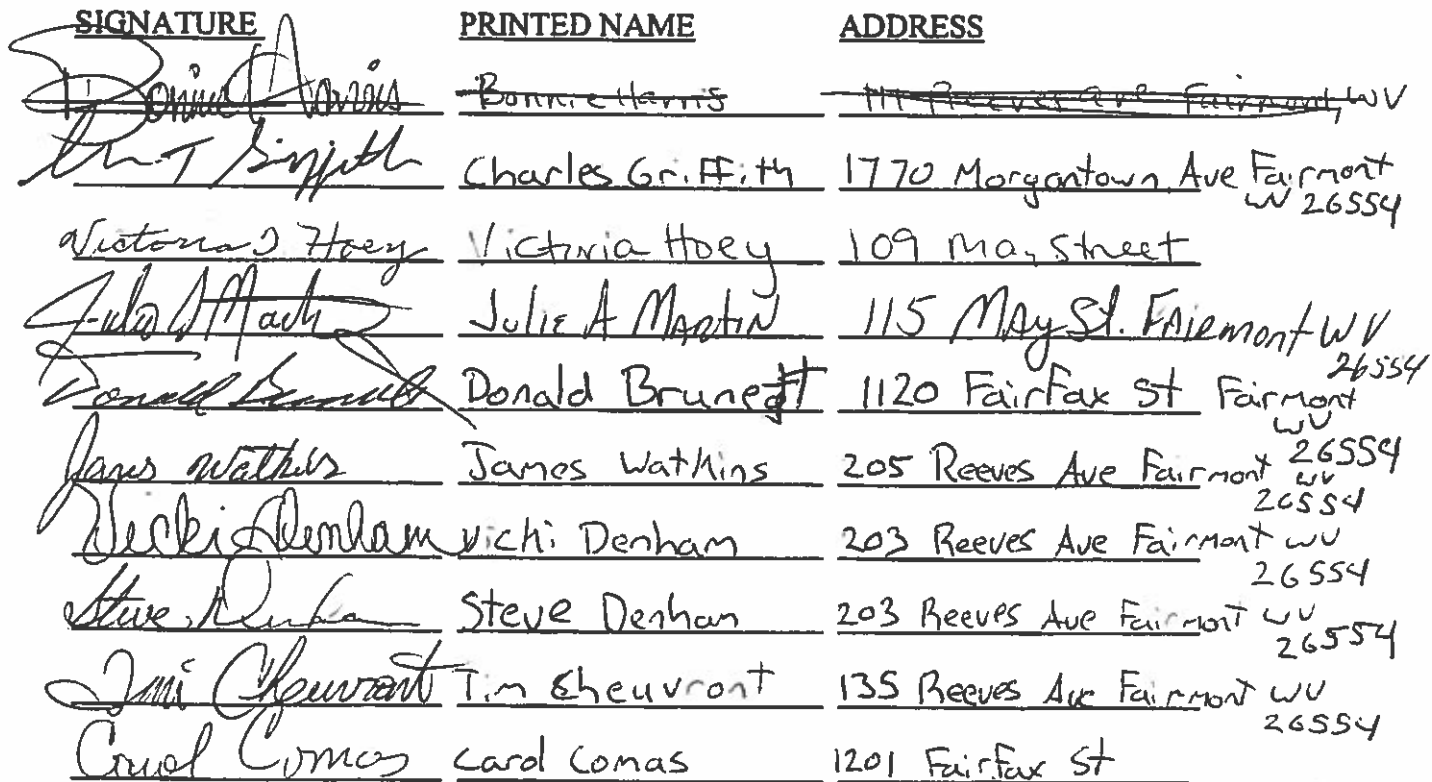 SIGNATURE PRINTED NAME ADDRESS
Bonnie Harris Bonnie Harris Reeves Ave Fairmont, WV
Griffith Charles Griffith 1770 Morgantown Ave Fairmont
WV 26554
Victoria Hoey Victoria Hoey 109 May Street
Julie A Martin Julie A Martin 115 May St. Fairmont WV
26554
Donald Brunett Donald Brunett 1120 Fairfax St Fairmont
WV
26554
James Watkins James Watkins 205 Reeves Ave Fairmont WV
26554
Vicki Denham Vicki Denham 203 Reeves Ave Fairmont WV
26554
Steve Denham Steve Denham 203 Reeves Ave Fairmont WV
26554
Tim Cheuvront Tim Cheuvront 135 Reeves Ave Fairmont WV
26554
Carol Comas Carol Comas 1201 Fairfax St